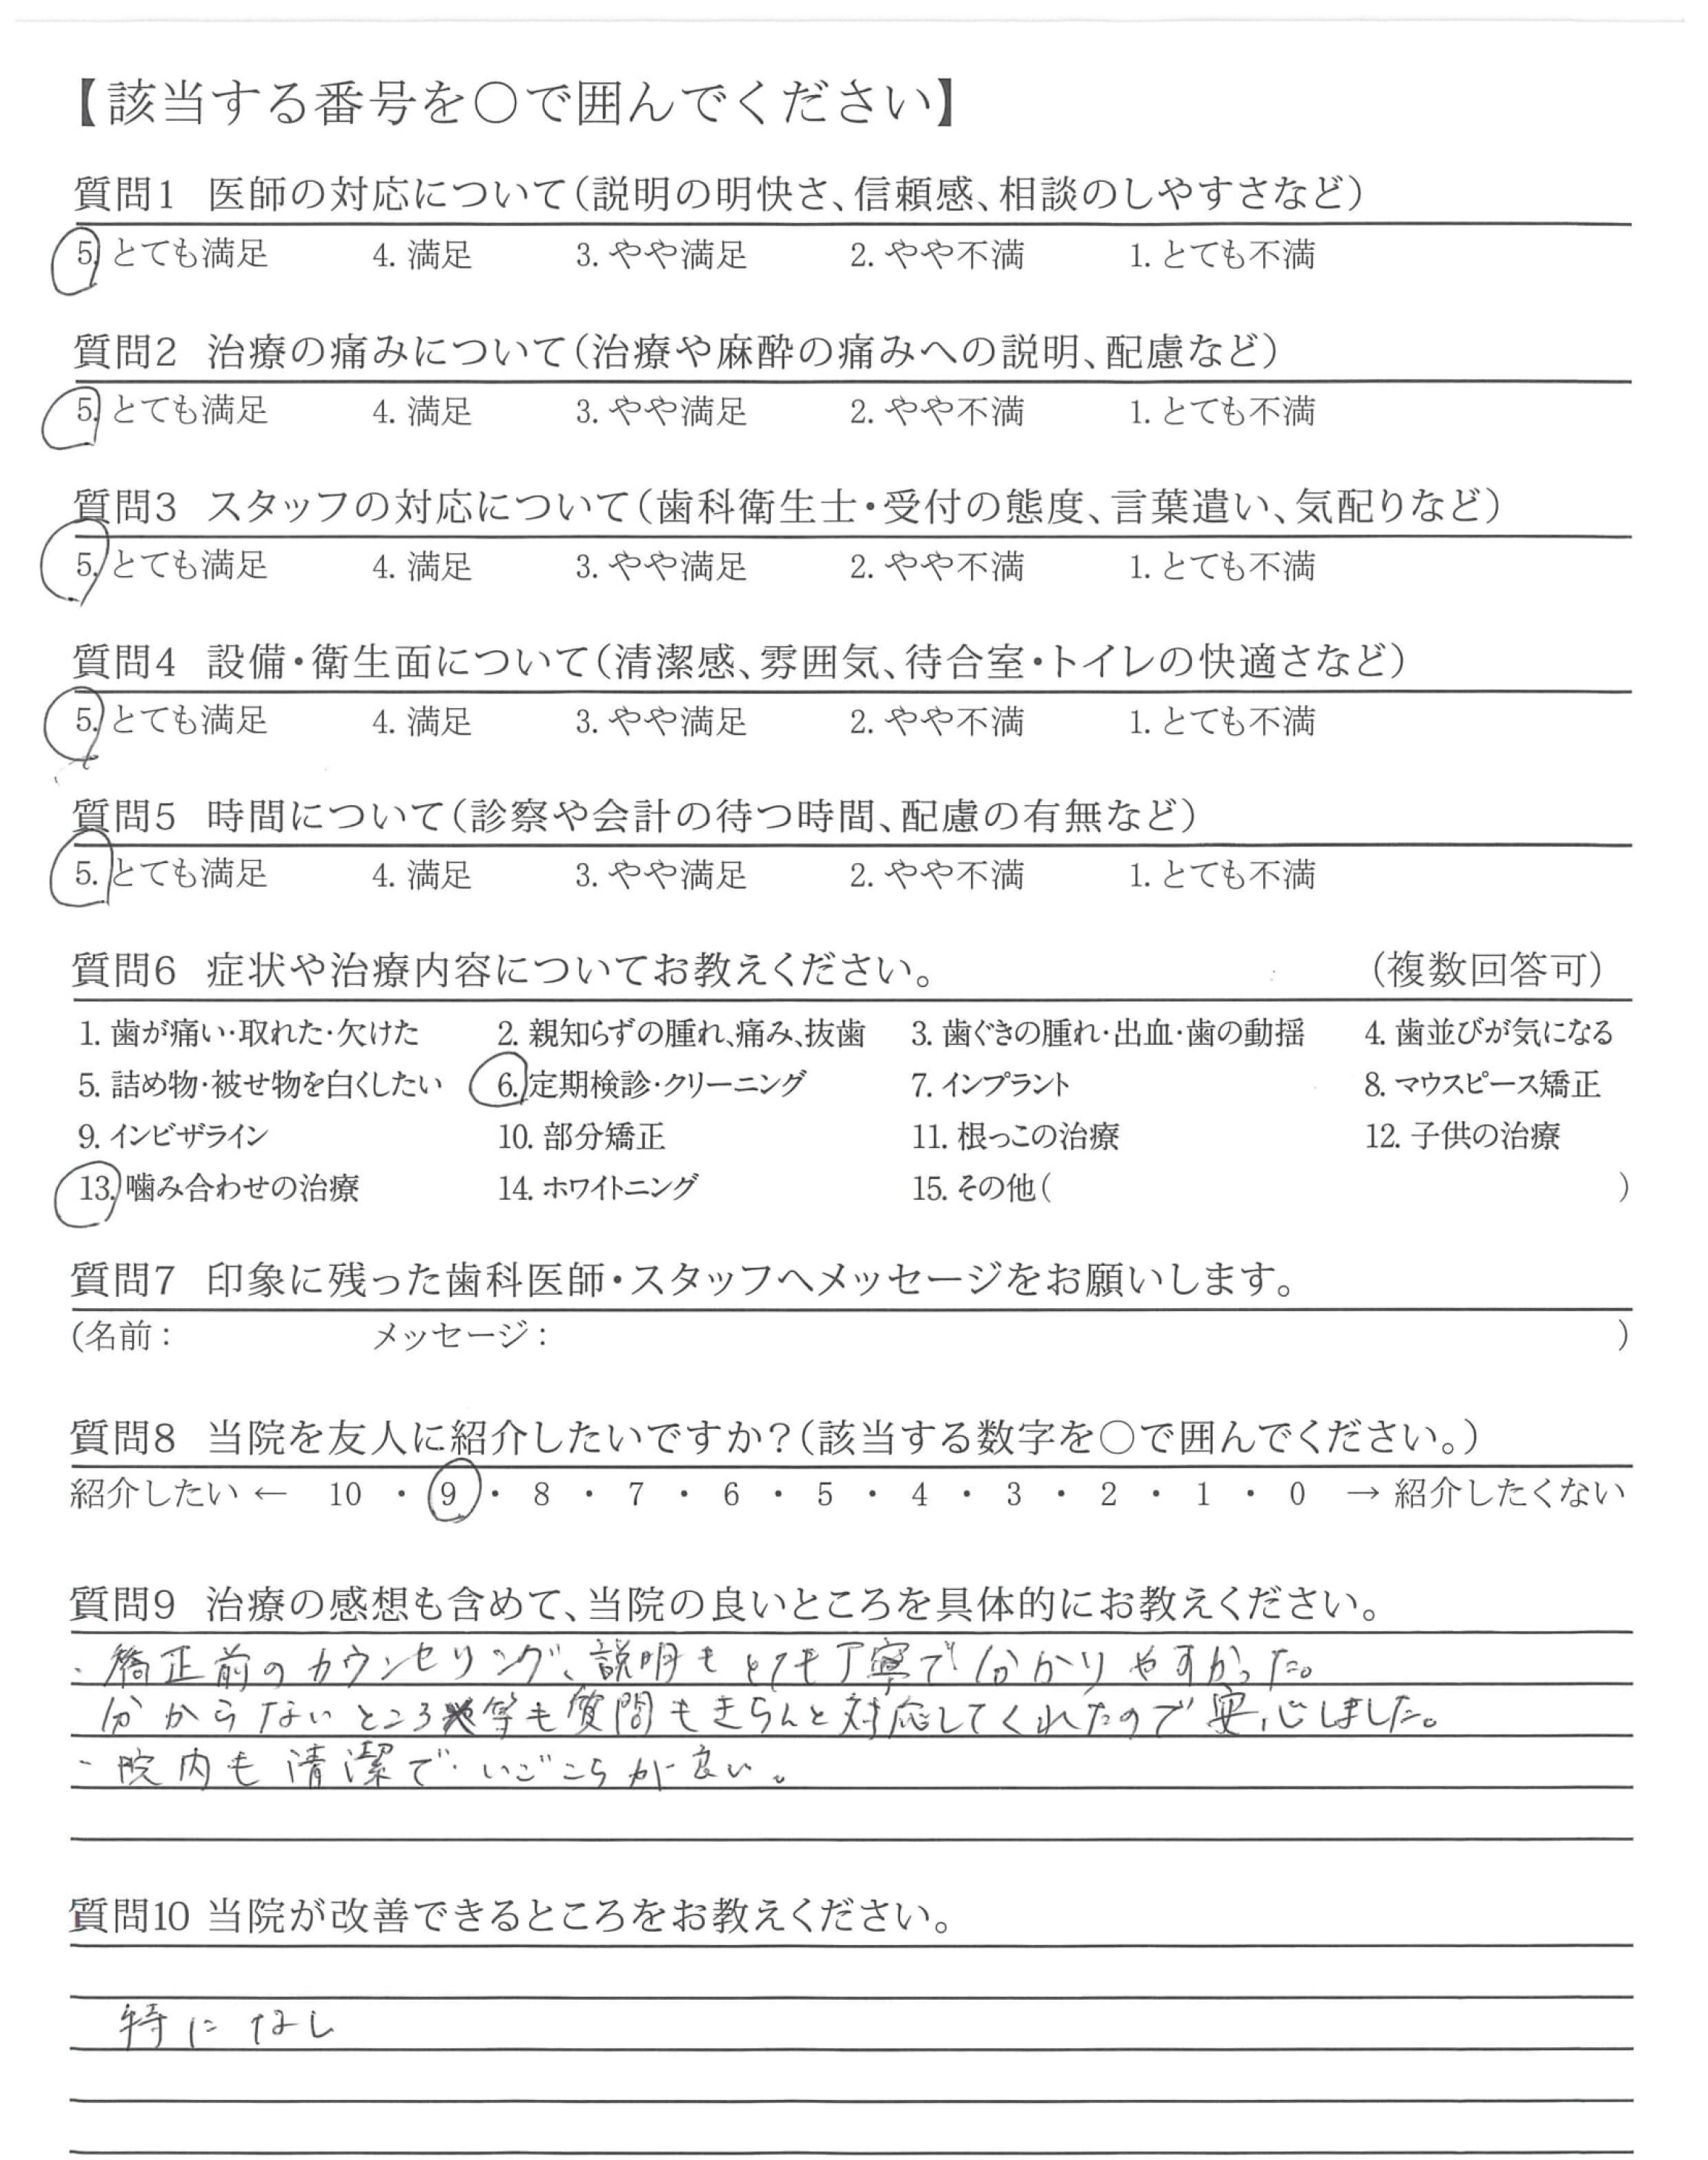 【該当する番号を○で囲んでください】
質問1 医師の対応について(説明の明快さ、信頼感、相談のしやすさなど)
5. とても満足 4. 満足 3. やや満足 2. やや不満 1. とても不満
質問2 治療の痛みについて(治療や麻酔の痛みへの説明、配慮など)
5. とても満足 4. 満足 3. やや満足 2. やや不満 1. とても不満
質問3 スタッフの対応について(歯科衛生士・受付の態度、言葉遣い、気配りなど)
5. とても満足 4. 満足 3. やや満足 2. やや不満 1. とても不満
質問4 設備・衛生面について(清潔感、雰囲気、待合室・トイレの快適さなど)
5. とても満足 4. 満足 3. やや満足 2. やや不満 1. とても不満
質問5 時間について(診察や会計の待つ時間、配慮の有無など)
5. とても満足 4. 満足 3. やや満足 2. やや不満 1. とても不満
質問6 症状や治療内容についてお教えください。 (複数回答可)
1. 歯が痛い・取れた・欠けた 2. 親知らずの腫れ、痛み、抜歯 3. 歯ぐきの腫れ・出血・歯の動揺 4. 歯並びが気になる
5. 詰め物・被せ物を白くしたい 6. 定期検診・クリーニング 7. インプラント 8. マウスピース矯正
9. インビザライン 10. 部分矯正 11. 根っこの治療 12. 子供の治療
13. 噛み合わせの治療 14. ホワイトニング 15. その他( )
質問7 印象に残った歯科医師・スタッフへメッセージをお願いします。
(名前: メッセージ: )
質問8 当院を友人に紹介したいですか?(該当する数字を○で囲んでください。)
紹介したい ← 10 ・ 9 ・ 8 ・ 7 ・ 6 ・ 5 ・ 4 ・ 3 ・ 2 ・ 1 ・ 0 → 紹介したくない
質問9 治療の感想も含めて、当院の良いところを具体的にお教えください。
・矯正前のカウンセリング、説明もとても丁寧で分かりやすかった。
分からないところ等も質問もきちんと対応してくれたので安心しました。
・院内も清潔で いごこちが良い。
質問10 当院が改善できるところをお教えください。
特になし